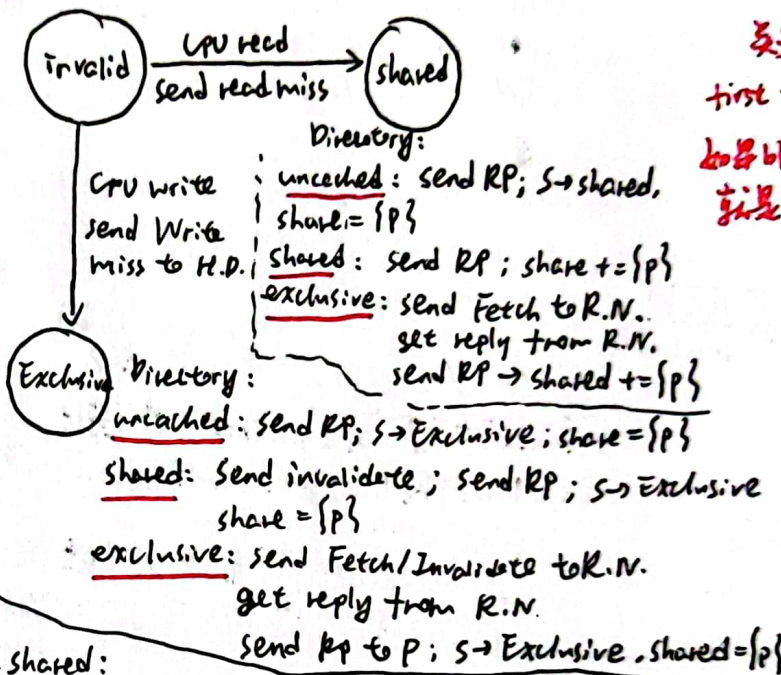 invalid
CPU read
send read miss
shared
first
如果
就是
Directory:
uncached: send RP; S→shared,
share = {p}
shared: send RP; share += {p}
exclusive: send Fetch to R.N.
get reply from R.N.
send RP → shared += {p}
CPU write
send Write
miss to H.D.
Exclusive
Directory:
uncached: send RP; S→Exclusive; share = {p}
shared: Send invalidate; send RP; S→Exclusive
share = {p}
exclusive: send Fetch/Invalidate to R.N.
get reply from R.N.
send Rp to P; S→Exclusive. shared={p}
shared: